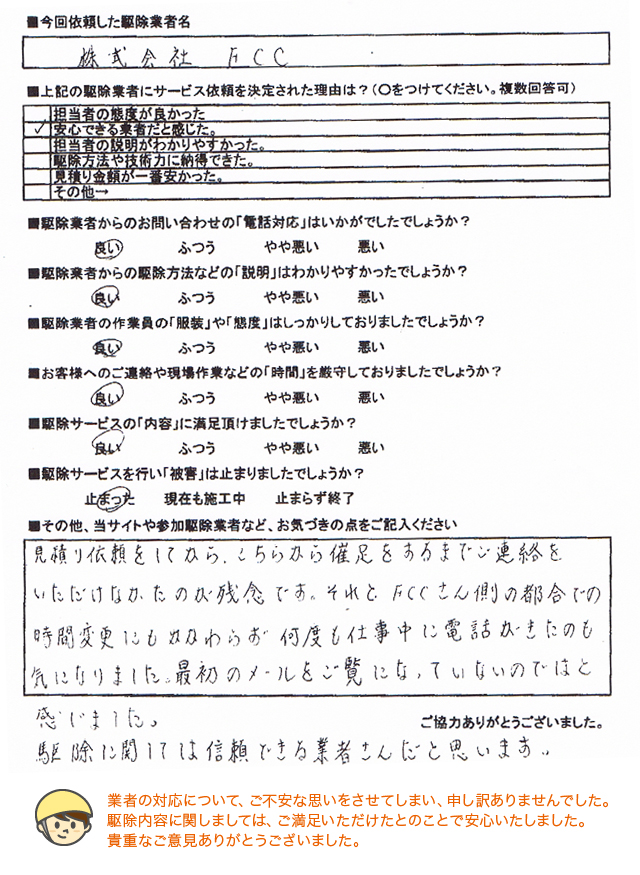 ■今回依頼した駆除業者名
株式会社 FCC
■上記の駆除業者にサービス依頼を決定された理由は?(〇をつけてください。複数回答可)
担当者の態度が良かった
✓ 安心できる業者だと感じた。
担当者の説明がわかりやすかった。
駆除方法や技術力に納得できた。
見積り金額が一番安かった。
その他→
■駆除業者からのお問い合わせの「電話対応」はいかがでしたでしょうか?
良い ふつう やや悪い 悪い
■駆除業者からの駆除方法などの「説明」はわかりやすかったでしょうか?
良い ふつう やや悪い 悪い
■駆除業者の作業員の「服装」や「態度」はしっかりしておりましたでしょうか?
良い ふつう やや悪い 悪い
■お客様へのご連絡や現場作業などの「時間」を厳守しておりましたでしょうか?
良い ふつう やや悪い 悪い
■駆除サービスの「内容」に満足頂けましたでしょうか?
良い ふつう やや悪い 悪い
■駆除サービスを行い「被害」は止まりましたでしょうか?
止まった 現在も施工中 止まらず終了
■その他、当サイトや参加駆除業者など、お気づきの点をご記入ください
見積り依頼をしてから、こちらから催足をするまでご連絡を
いただけなかたのが残念です。それと FCCさん側の都合での
時間変更にもかかわらず 何度も仕事中に電話がきたのも
気になりました。最初のメールをご覧になっていないのではと
感じました。
ご協力ありがとうございました。
駆除に関しては信頼できる業者さんだと思います。
業者の対応について、ご不安な思いをさせてしまい、申し訳ありませんでした。
駆除内容に関しましては、ご満足いただけたとのことで安心いたしました。
貴重なご意見ありがとうございました。